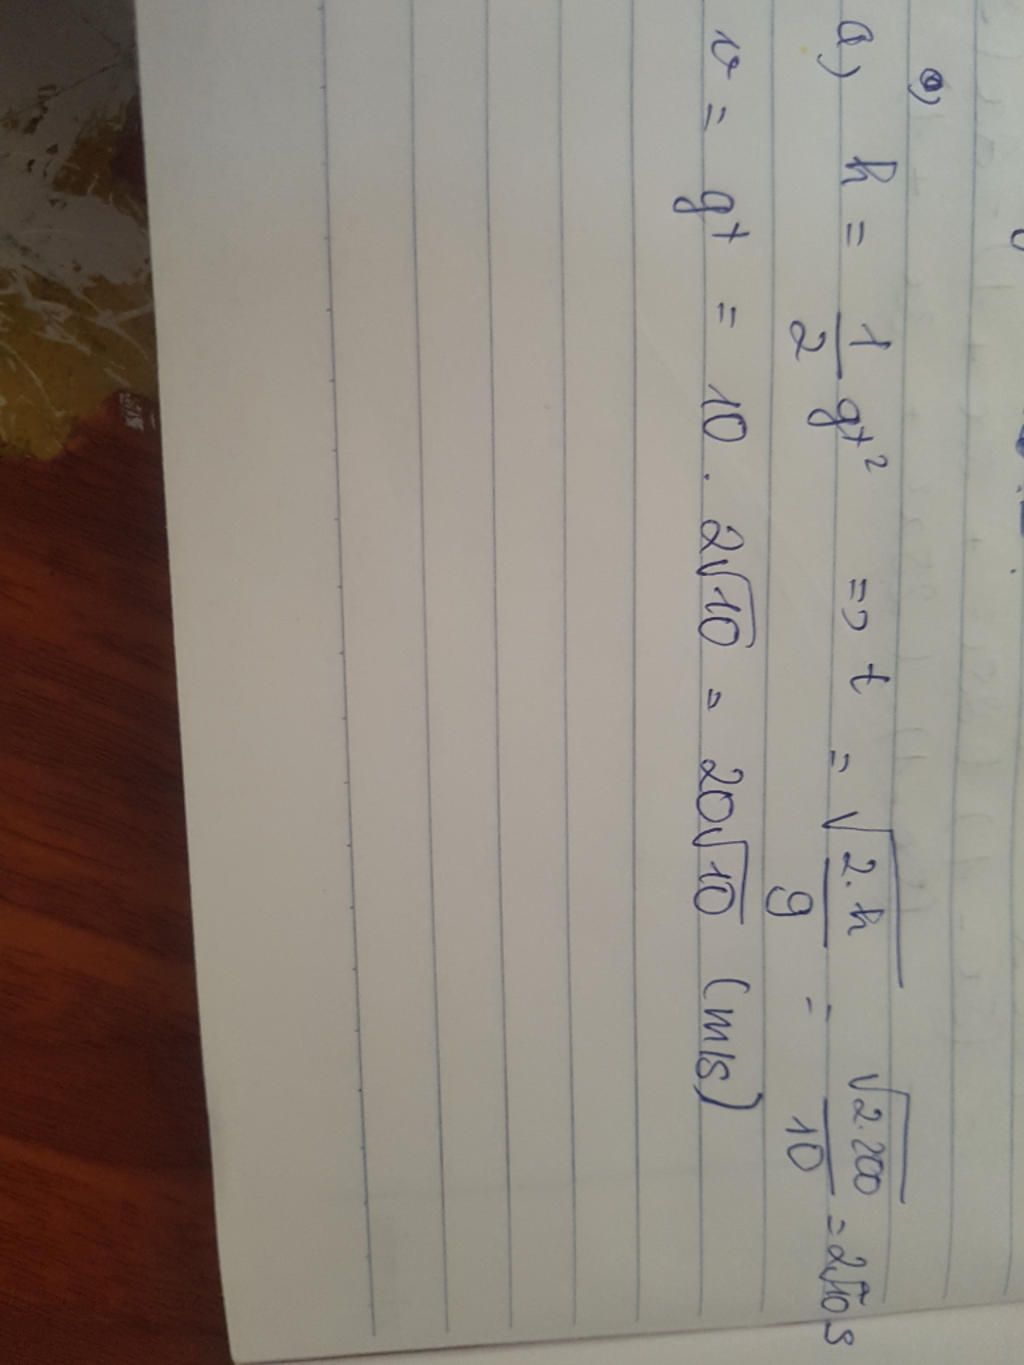 a)
a) h = 1/2 gt² => t = √(2.h/g) = √(2.200/10) = 2√10 s
v = gt = 10 . 2√10 = 20√10 (m/s)